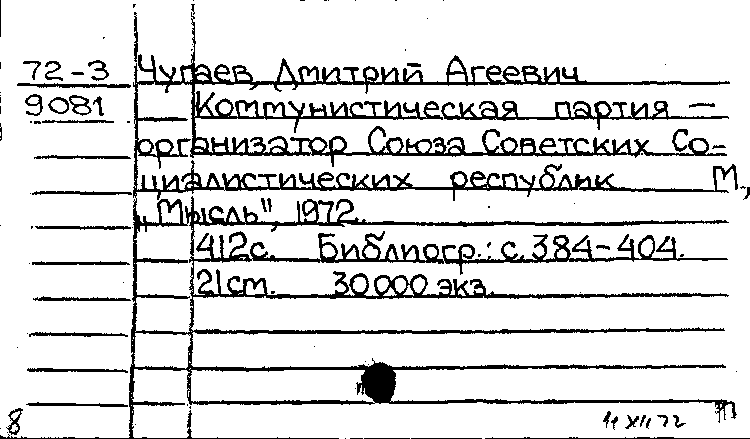 72-3 Чугаев, Дмитрий Агеевич
9081 Коммунистическая партия —
организатор Союза Советских Со-
циалистических республик М.,
„Мысль", 1972.
412с. Библиогр.: с. 384-404.
21см. 30000 экз.
8 11 XII 72